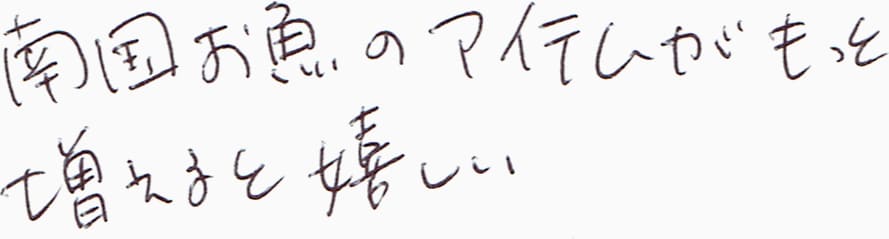 南国お魚のアイテムがもっと
増えると嬉しい